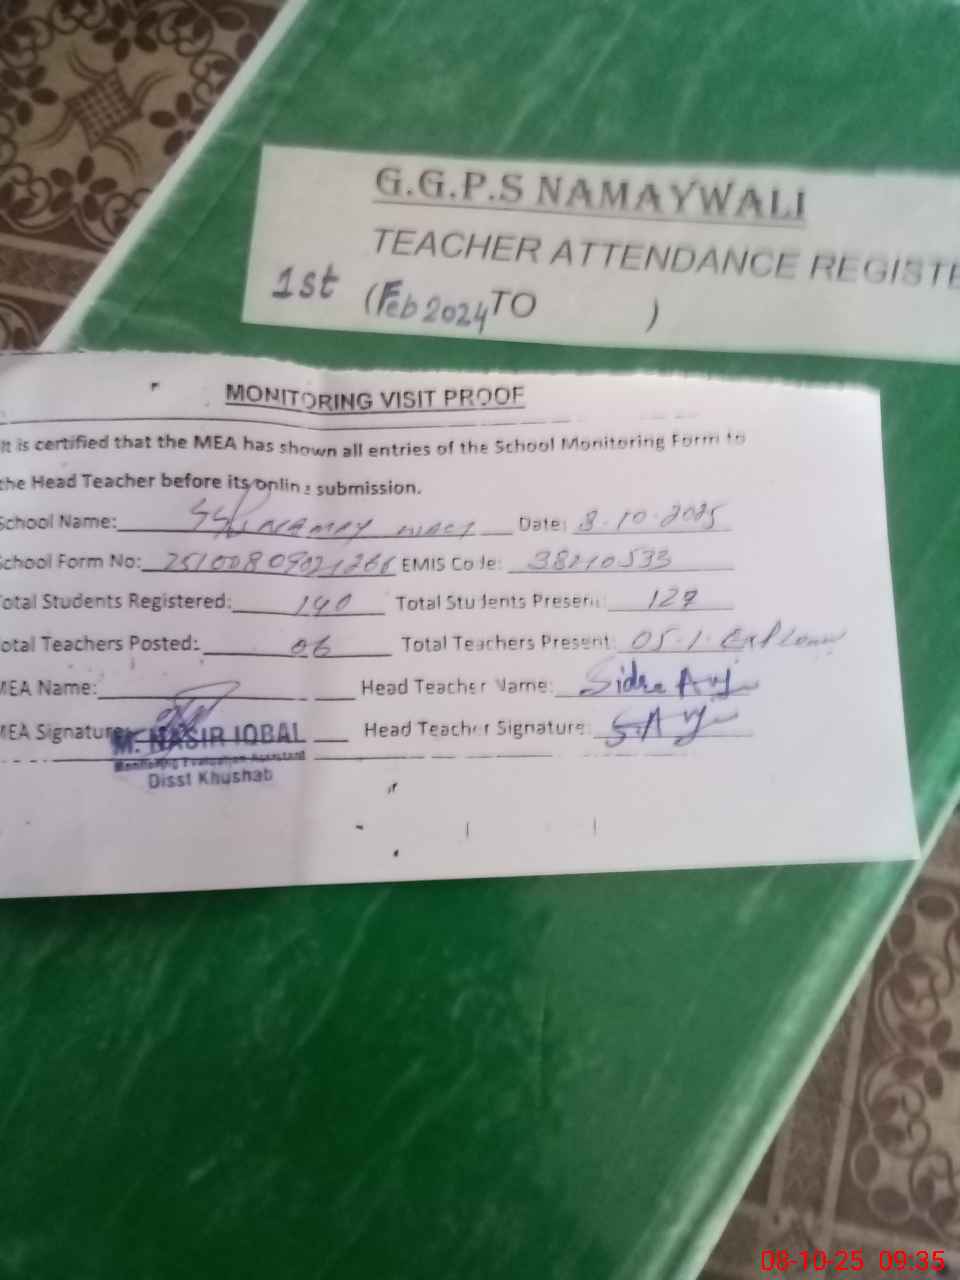 G.G.P.S NAMAYWALI
TEACHER ATTENDANCE REGISTE
1st (Feb 2024 TO )
MONITORING VISIT PROOF
It is certified that the MEA has shown all entries of the School Monitoring Form to
the Head Teacher before its online submission.
School Name: NAMAY WALI Date: 8-10-2025
School Form No: EMIS Code: 38210533
Total Students Registered: 140 Total Students Present:
Total Teachers Posted: 06 Total Teachers Present: 05
MEA Name: Head Teacher Name: Sidra
MEA Signature: Head Teacher Signature:
M. NASIR IQBAL
Monitoring Evaluation Assistant
Disst Khushab
08-10-25 09:35